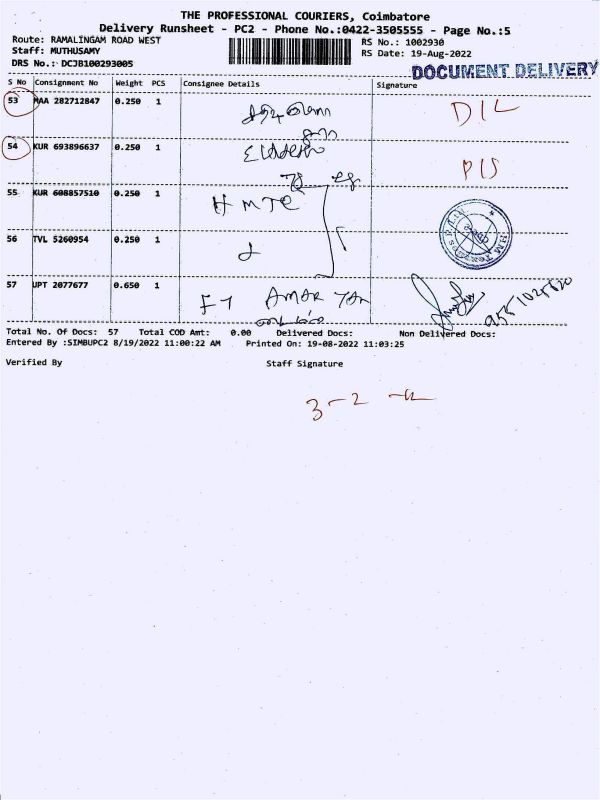 THE PROFESSIONAL COURIERS, Coimbatore
Delivery Runsheet - PC2 - Phone No.:0422-3505555 - Page No.:5
Route: RAMALINGAM ROAD WEST
RS No.: 1002930
Staff: MUTHUSAMY
RS Date: 19-Aug-2022
DRS No.: DCJB100293005
DOCUMENT DELIVERY
S No Consignment No Weight PCS Consignee Details Signature
53 MAA 282712847 0.250 1 D/L
54 KUR 693896637 0.250 1 P/S
55 KUR 608857510 0.250 1 H M T C
56 TVL 5260954 0.250 1
57 UPT 2077677 0.650 1 AMAR
Total No. Of Docs: 57 Total COD Amt: 0.00 Delivered Docs: Non Delivered Docs:
Entered By :SIMBUPC2 8/19/2022 11:00:22 AM Printed On: 19-08-2022 11:03:25
Verified By Staff Signature